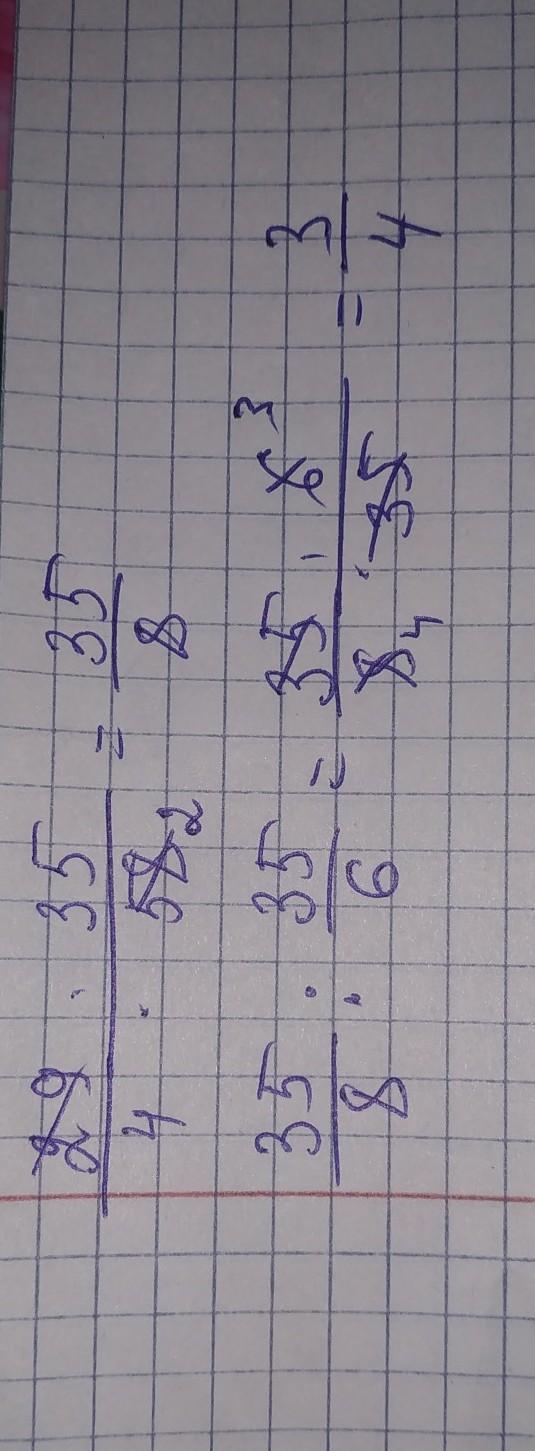 29 · 35 / 4 · 58 2 = 35/8
35/8 : 35/6 = 35 · 6 3 / 8 4 · 35 = 3/4